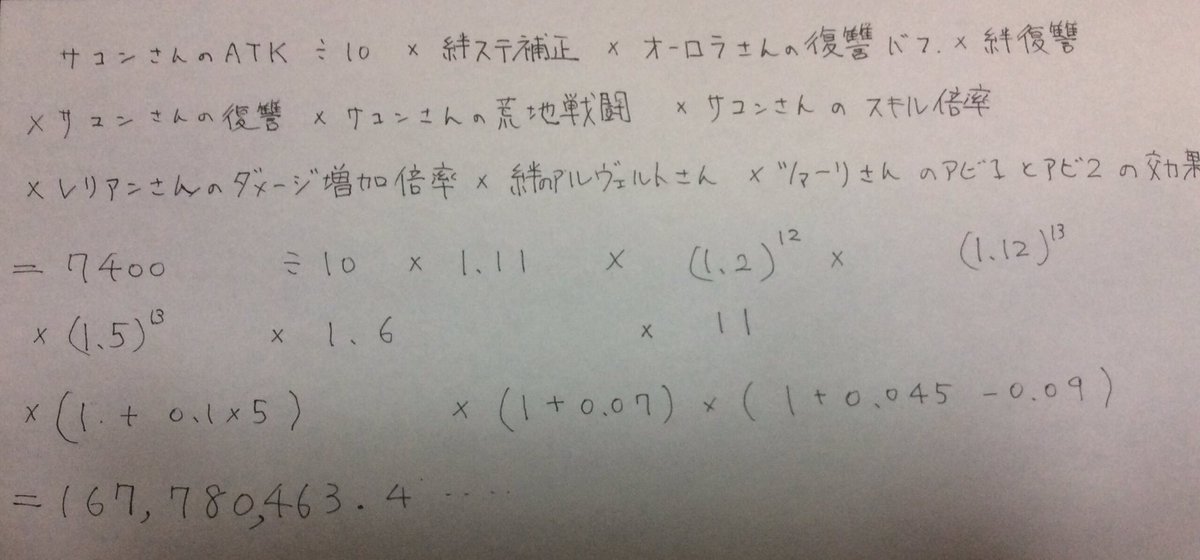 サコンさんのATK ÷10 × 絆ステ補正 × オーロラさんの復讐バフ × 絆復讐
×サコンさんの復讐 × サコンさんの荒地戦闘 × サコンさんの スキル倍率
×レリアンさんのダメージ増加倍率 × 絆のアルヴェルトさん × ツァーリさん のアビ1とアビ2の効果
= 7400 ÷10 × 1.11 × (1.2)^12 × (1.12)^13
× (1.5)^13 × 1.6 × 11
× (1.+ 0.1×5) × (1+0.07) × (1+0.045 -0.09)
= 167,780,463.4 ....